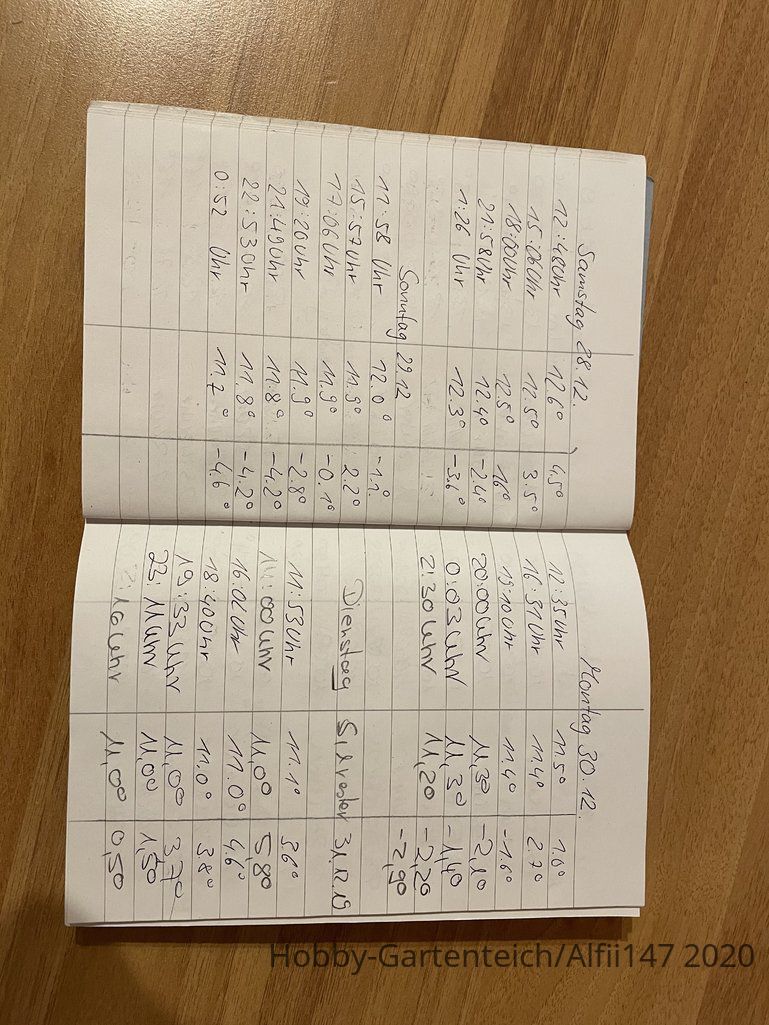 Samstag 28.12.
12:48 Uhr 12.6° 4,5°
15:06 Uhr 12.5° 3.5°
18:00 Uhr 12.5° 16°
21:58 Uhr 12.4° -2.4°
1:26 Uhr 12.3° -3.6°
Sonntag 29.12
11:58 Uhr 12.0° -1.1°
15:57 Uhr 11.9° 2.2°
17:06 Uhr 11.9° -0.1°
19:20 Uhr 11.9° -2.8°
21:49 Uhr 11.8° -4.2°
22:53 Uhr 11.8° -4.2°
0:52 Uhr 11.7° -4.6°
Montag 30.12.
12:35 Uhr 11.5° 1.0°
16:31 Uhr 11.4° 2.7°
19:10 Uhr 11.4° -1.6°
20:00 Uhr 11,3° -2,1°
0:03 Uhr 11,3° -1,4°
2:30 Uhr 11,2° -2,2°
-2,9°
Dienstag Silvester 31.12.19
11:53 Uhr 11.1° 3.6°
14:00 Uhr 11,0° 5,8°
16:02 Uhr 11.0° 4.6°
18:40 Uhr 11.0° 3.8°
19:33 Uhr 11,0° 3,7°
23:11 Uhr 11,0° 1,5°
:10 Uhr 11,0° 0,5°
Hobby-Gartenteich/Alfii147 2020